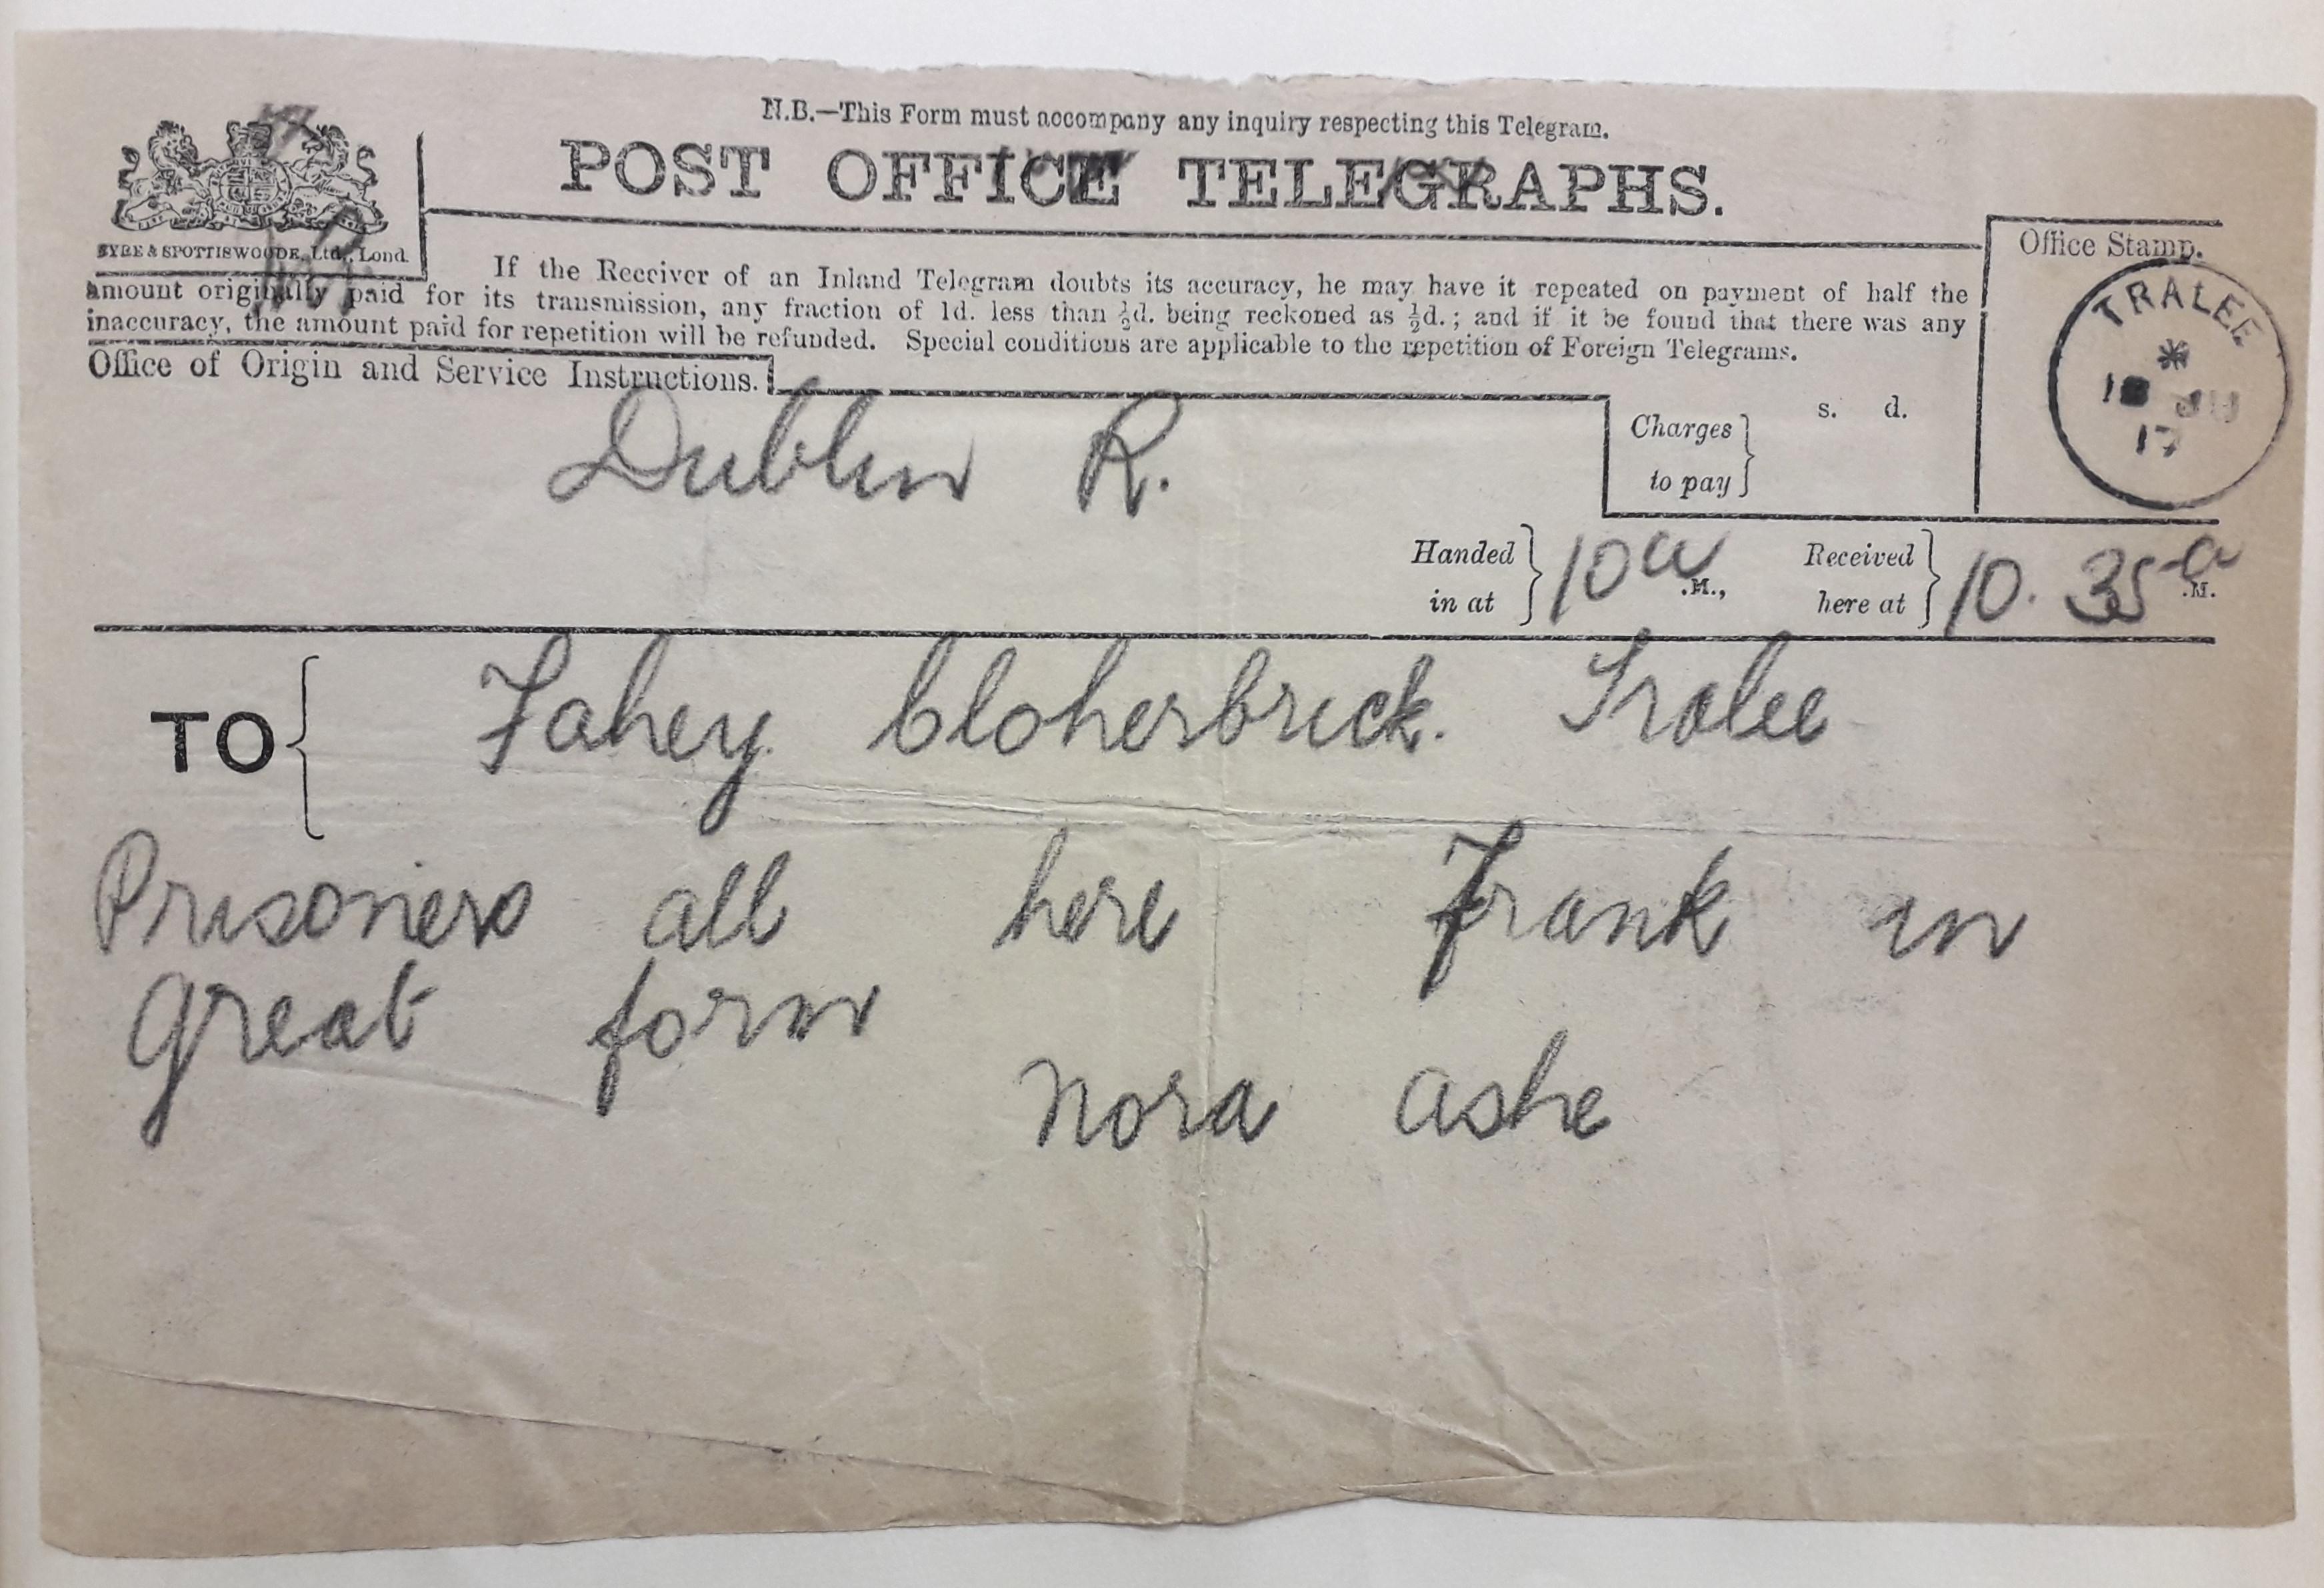 N.B.—This Form must accompany any inquiry respecting this Telegram.
POST OFFICE TELEGRAPHS.
EYRE & SPOTTISWOODE, Ltd., Lond.
If the Receiver of an Inland Telegram doubts its accuracy, he may have it repeated on payment of half the
amount originally paid for its transmission, any fraction of 1d. less than ½d. being reckoned as ½d.; and if it be found that there was any
inaccuracy, the amount paid for repetition will be refunded. Special conditions are applicable to the repetition of Foreign Telegrams.
Office Stamp.
TRALEE
17
Office of Origin and Service Instructions.
Dublin R.
Charges to pay } s. d.
Handed in at } 10 a .M., Received here at } 10.35 a .M.
TO { Fahey. Cloherbrick. Tralee
Prisoners all here Frank in
great form
Nora Ashe